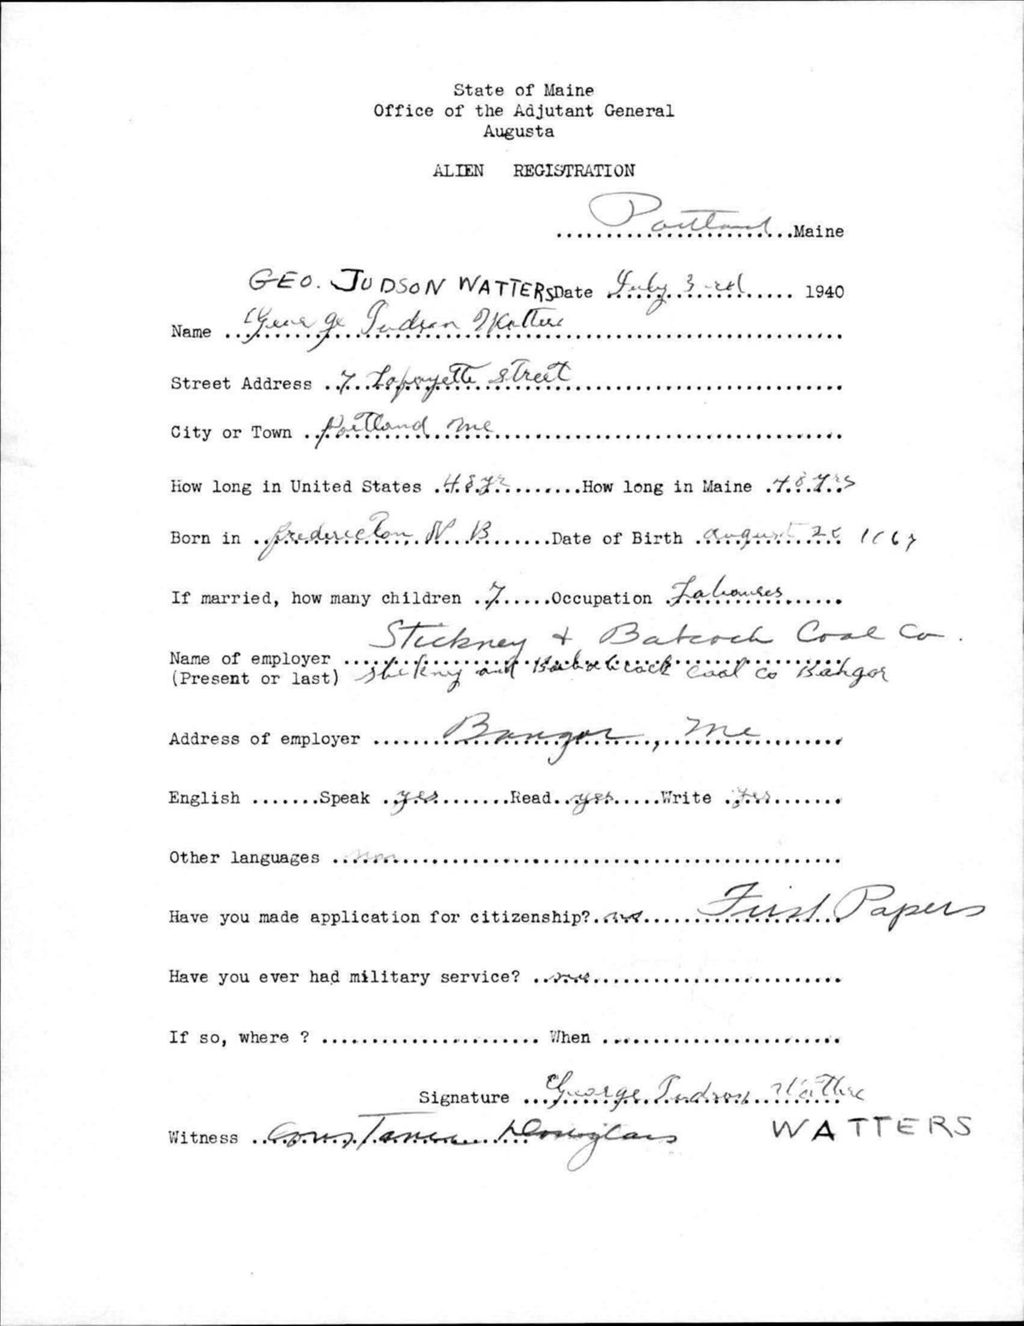 State of Maine
Office of the Adjutant General
Augusta
ALIEN REGISTRATION
Portland Maine
GEO. JUDSON WATTERS Date July 3rd 1940
Name George Judson Watters
Street Address 7 Lafayette Street
City or Town Portland Me
How long in United States 48 yrs How long in Maine 48 yrs
Born in Fredericton N B Date of Birth August
If married, how many children 7 Occupation
Stickney & Babcock Coal Co.
Name of employer
(Present or last) and coal co Bangor
Address of employer Bangor, Me
English Speak yes Read yes Write yes
Other languages
Have you made application for citizenship? First Papers
Have you ever had military service?
If so, where ? When
Signature George Judson
Witness Douglas WATTERS